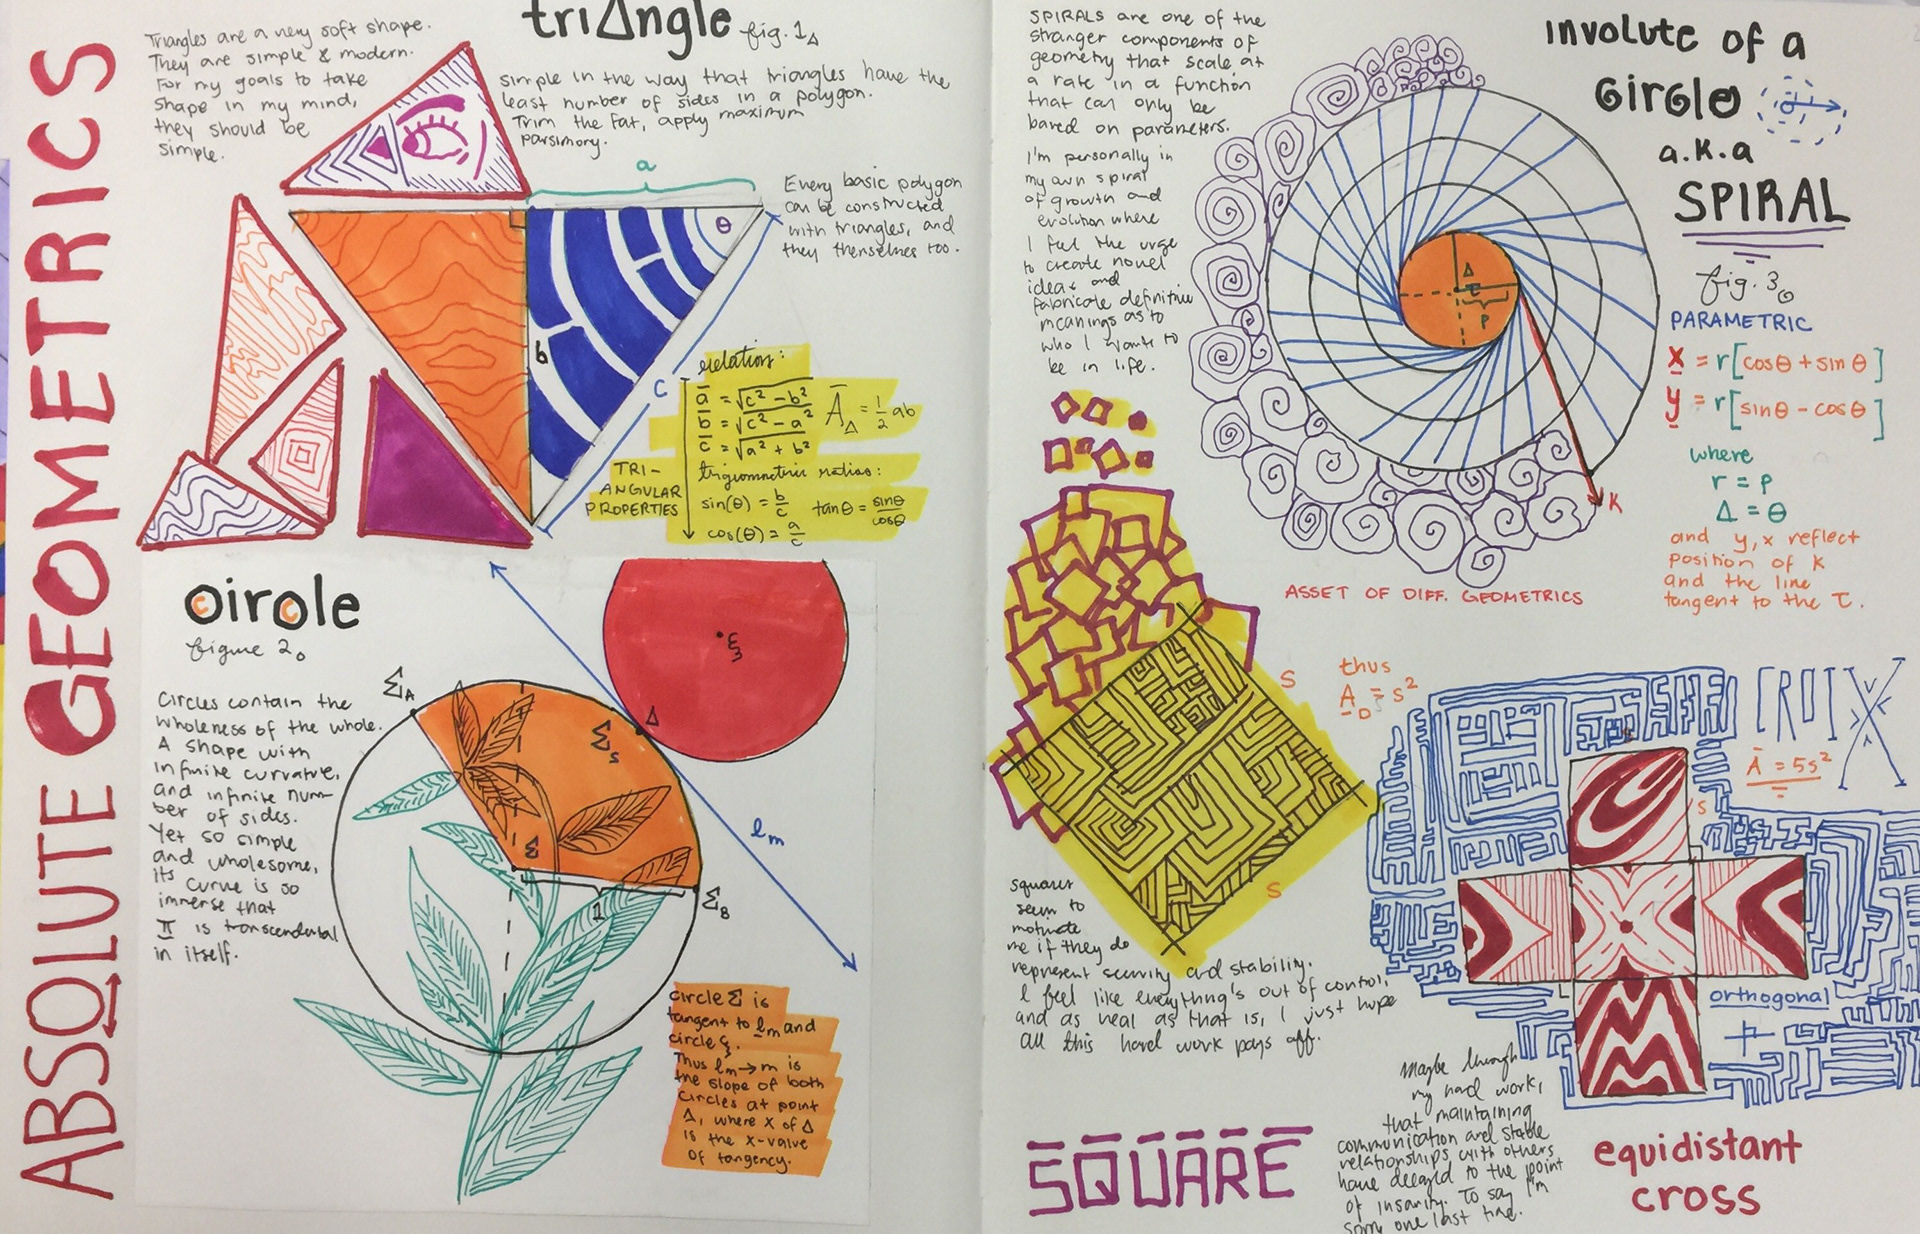 ABSOLUTE GEOMETRICS
Triangles are a very soft shape.
They are simple & modern.
For my goals to take
shape in my mind,
they should be
simple.
triΔngle fig. 1Δ
simple in the way that triangles have the
least number of sides in a polygon.
Trim the fat, apply maximum
parsimony.
a
Every basic polygon
can be constructed
with triangles, and
they themselves too.
θ
b
c
relations:
a̅ = √c² − b²
b̅ = √c² − a²
c̅ = √a² + b²
A̅Δ = ½ ab
trigonometric ratios:
sin(θ) = b/c
tanθ = sinθ/cosθ
cos(θ) = a/c
TRI-
ANGULAR
PROPERTIES
circle
figure 2o
Circles contain the
wholeness of the whole.
A shape with
infinite curvature,
and infinite num-
ber of sides.
Yet so simple
and wholesome,
its curve is so
immense that
π is transcendental
in itself.
ξ
ΣA
Σs
Δ
Σ
1
ΣB
ℓm
circle Σ is
tangent to ℓm and
circle ξ.
Thus ℓm→m is
the slope of both
circles at point
Δ, where x of Δ
is the x-value
of tangency.
SPIRALS are one of the
stranger components of
geometry that scale at
a rate in a function
that can only be
based on parameters.
I'm personally in
my own spiral
of growth and
evolution where
I feel the urge
to create novel
ideas and
fabricate definitive
meanings as to
who I want to
be in life.
Involute of a
Circle
a.k.a
SPIRAL
fig. 3
PARAMETRIC
x = r[cosθ + sin θ]
y = r[sinθ − cosθ]
where
r = p
Δ = θ
and y, x reflect
position of K
and the line
tangent to the τ.
Δ
τ
p
K
ASSET OF DIFF. GEOMETRICS
S
thus
A□ = s²
S
squares
seem to
motivate
me if they do
represent security and stability.
I feel like everything's out of control,
and as real as that is, I just hope
all this hard work pays off.
SQUARE
CROIX
A̅ = 5s²
s
orthogonal
Maybe through
my hard work,
that maintaining
communication and stable
relationships with others
have decayed to the point
of insanity. To say I'm
sorry one last time.
equidistant
cross